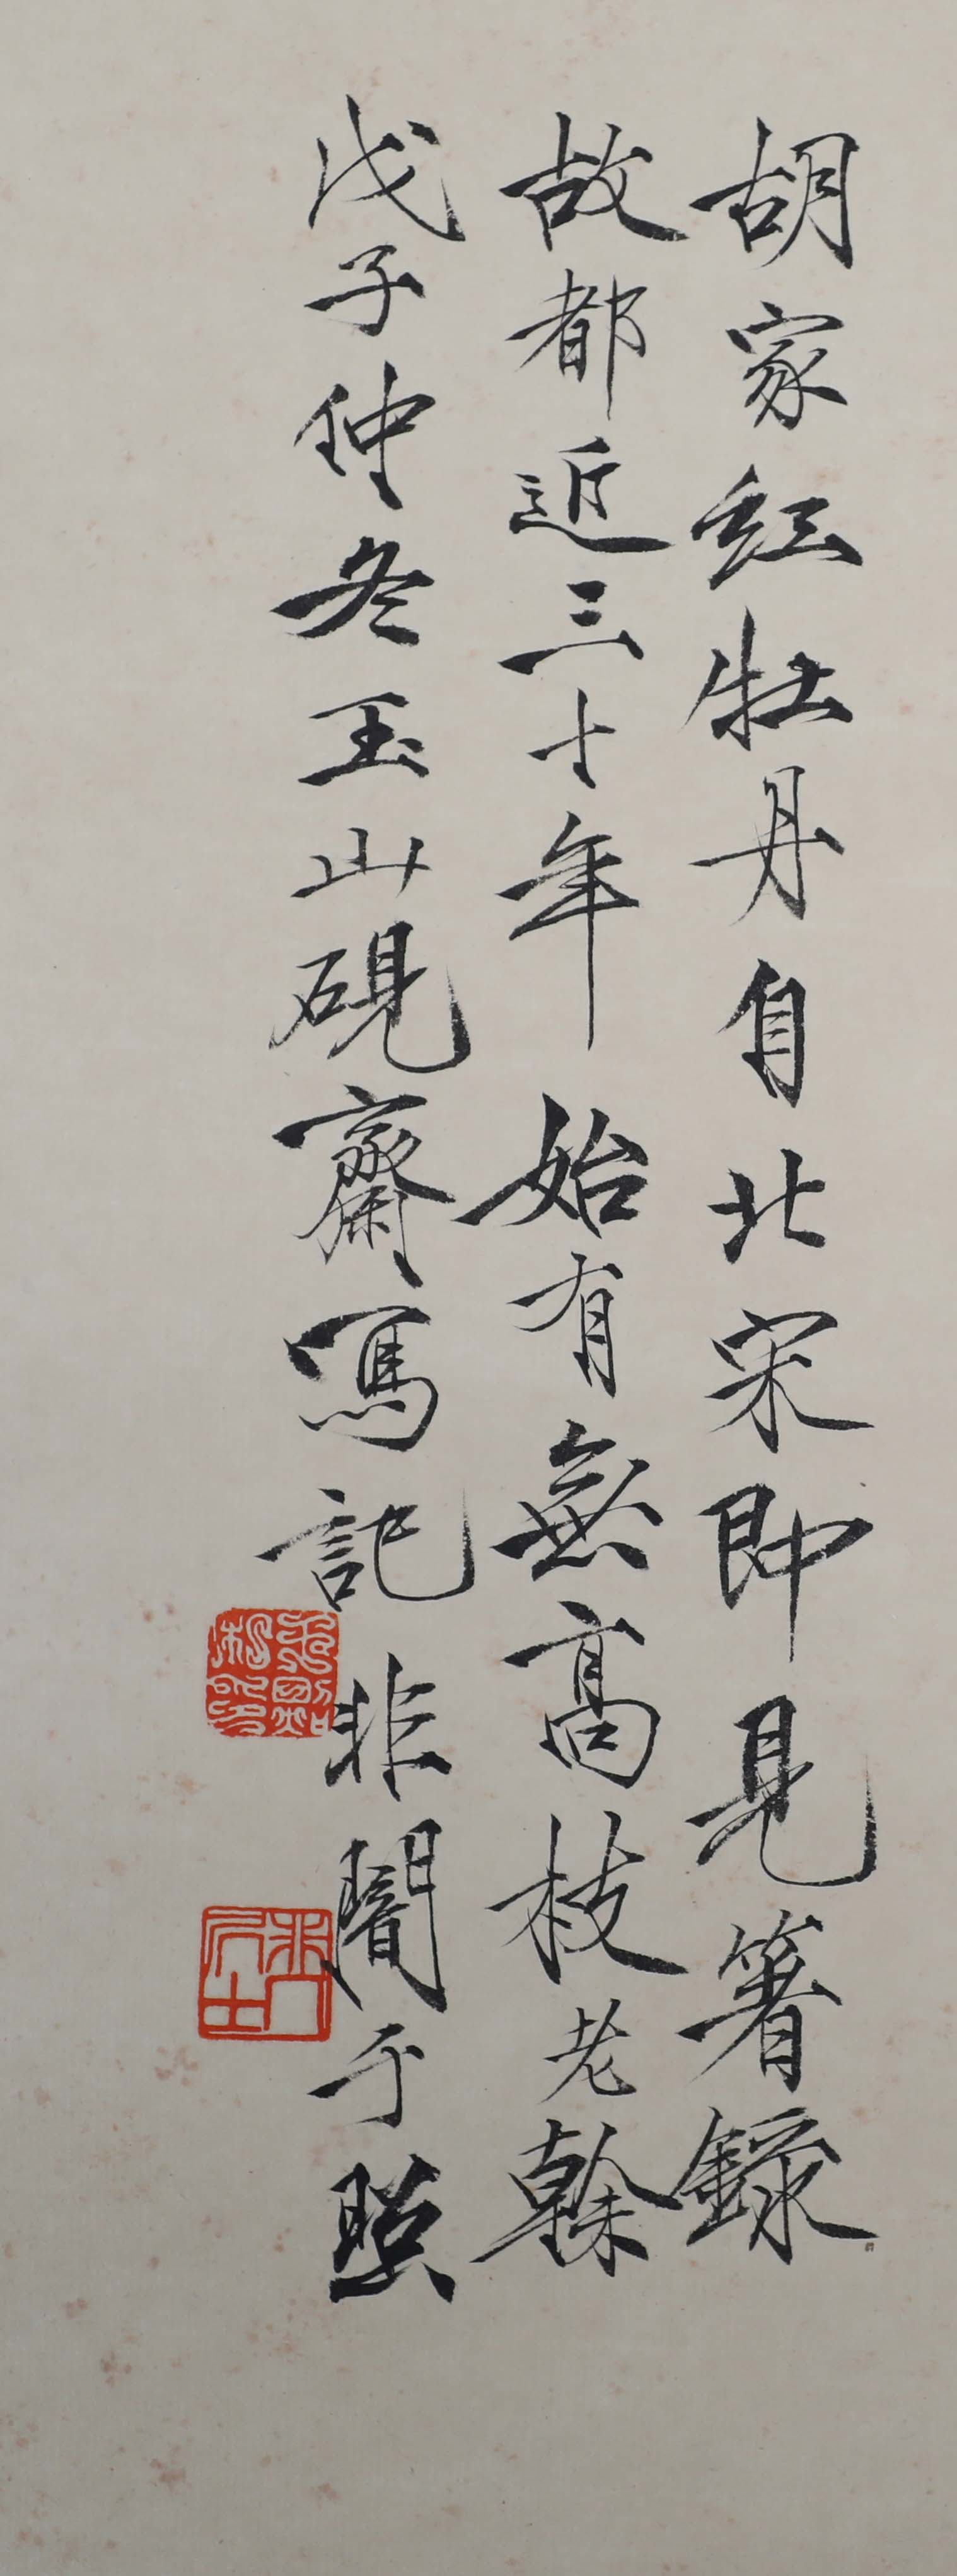 胡家紅牡丹自北宋即見箸錄
故都近三十年始有無高枝老榦
戊子仲冬玉山硯齋寫記非闇于照